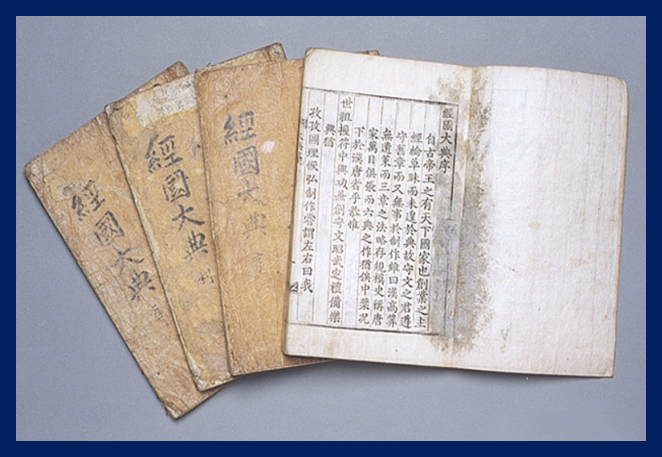 經國大典序
自古帝王之有天下國家也創業之主
經綸草昧而未遑於典故守文之君遵
守舊章而又無事於制作雖曰漢高算
無遺策而三章之法略存規模史稱唐
家萬目俱張而六典之作猶俟中葉況
下於漢唐者乎恭惟
世祖握符中興功兼創守文昭武定禮備樂
興猶
孜孜圖理恢弘制作嘗謂左右曰我
經國大典
經國大典
經國大典